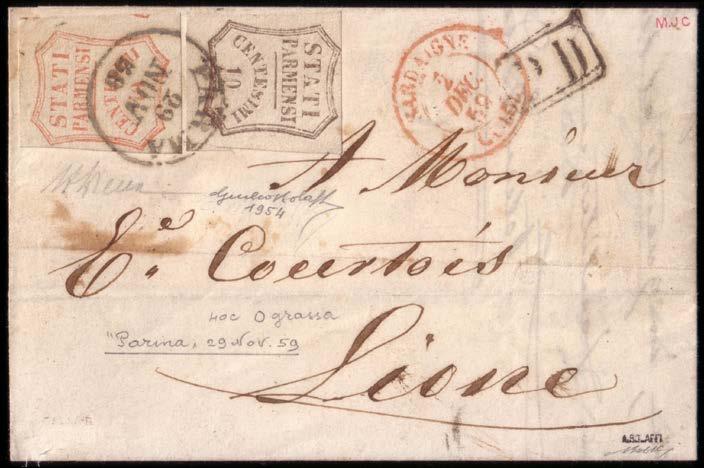 M.J.C
STATI
PARMENSI
CENTESIMI
STATI
PARMENSI
10
CENTESIMI
PARMA
29
NOV
59
SARDAIGNE
2
DEC.
59
PD
A Monsieur
1954
E.e Courtois
40c O grassa
"Parma, 29 Nov. 59
Lione
A.BOLAFFI